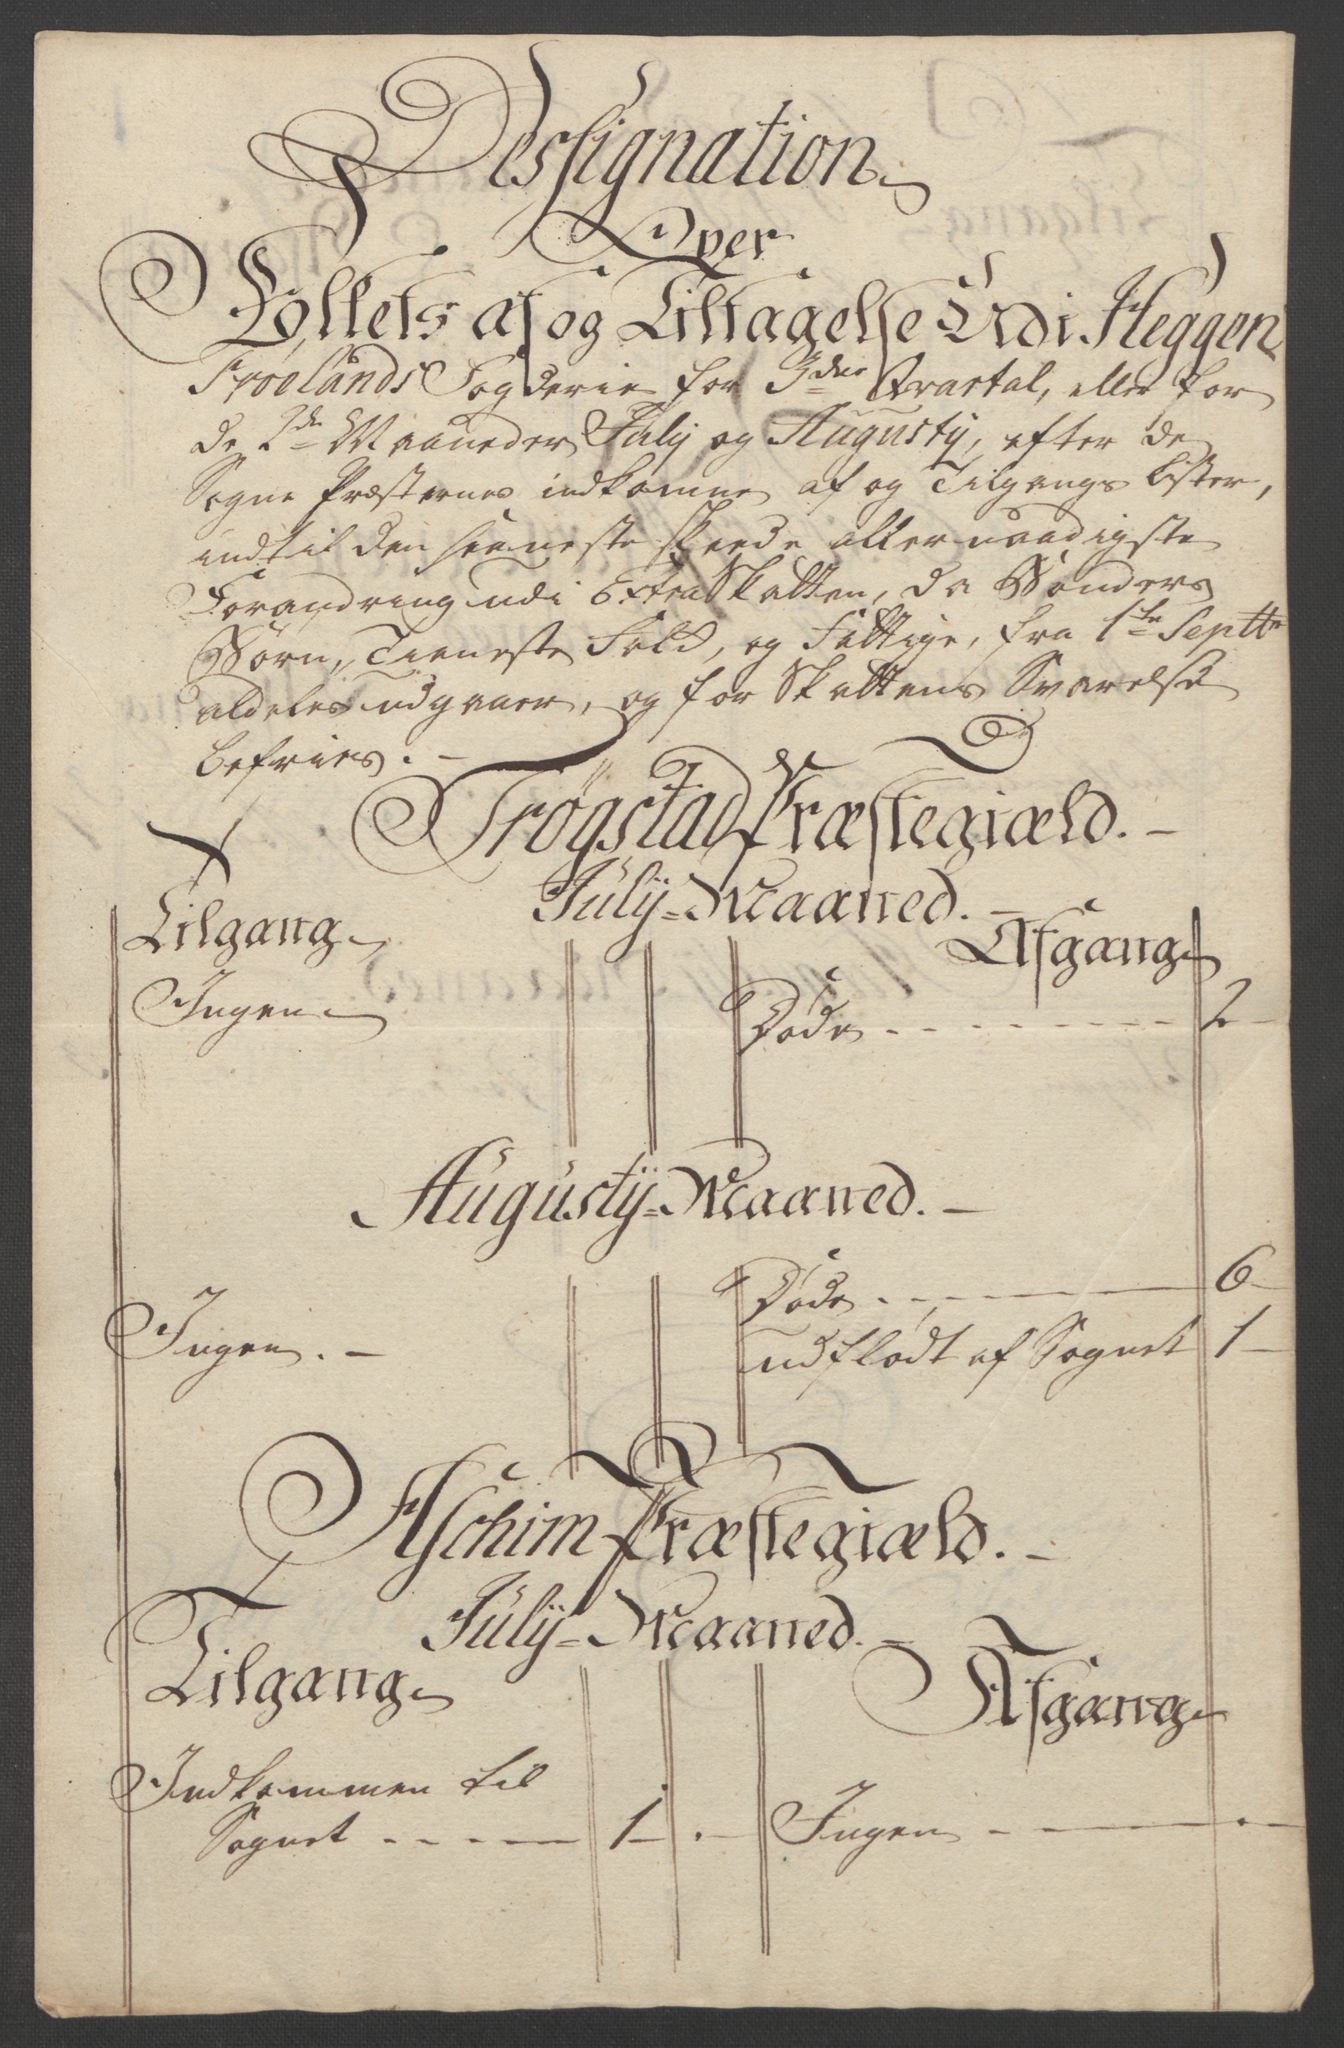 Dessignation
Over
Follets af og Tiltagelse Udi Heggen
Frøelands Fogderie for 3die Qvartal, eller for
de 2de Maaneder July og Augusty, efter de
Sogne Præsternes indkomne af og Tilgangs Lister,
indtil den seeneste skeede allernaadigste
Forandring udi Extra Skatten, da Bønders
Børn, Tieneste Folk, og Fattige, fra 1te Septbr
aldeles udgaaer, og for Skattens Svarelse
befries. -
Trøgstad Præstegiæld. -
July = Maaned. -
Tilgang Afgang
Ingen Døde - - - - - - 2 -
Augusty = Maaned. -
Døde - - - 6 -
Ingen. - udflødt af Sognet 1 -
Aschim Præstegiæld. -
July = Maaned. -
Tilgang Afgang
Indkommen til
Sognet - - - - 1 - . - Ingen - - - .